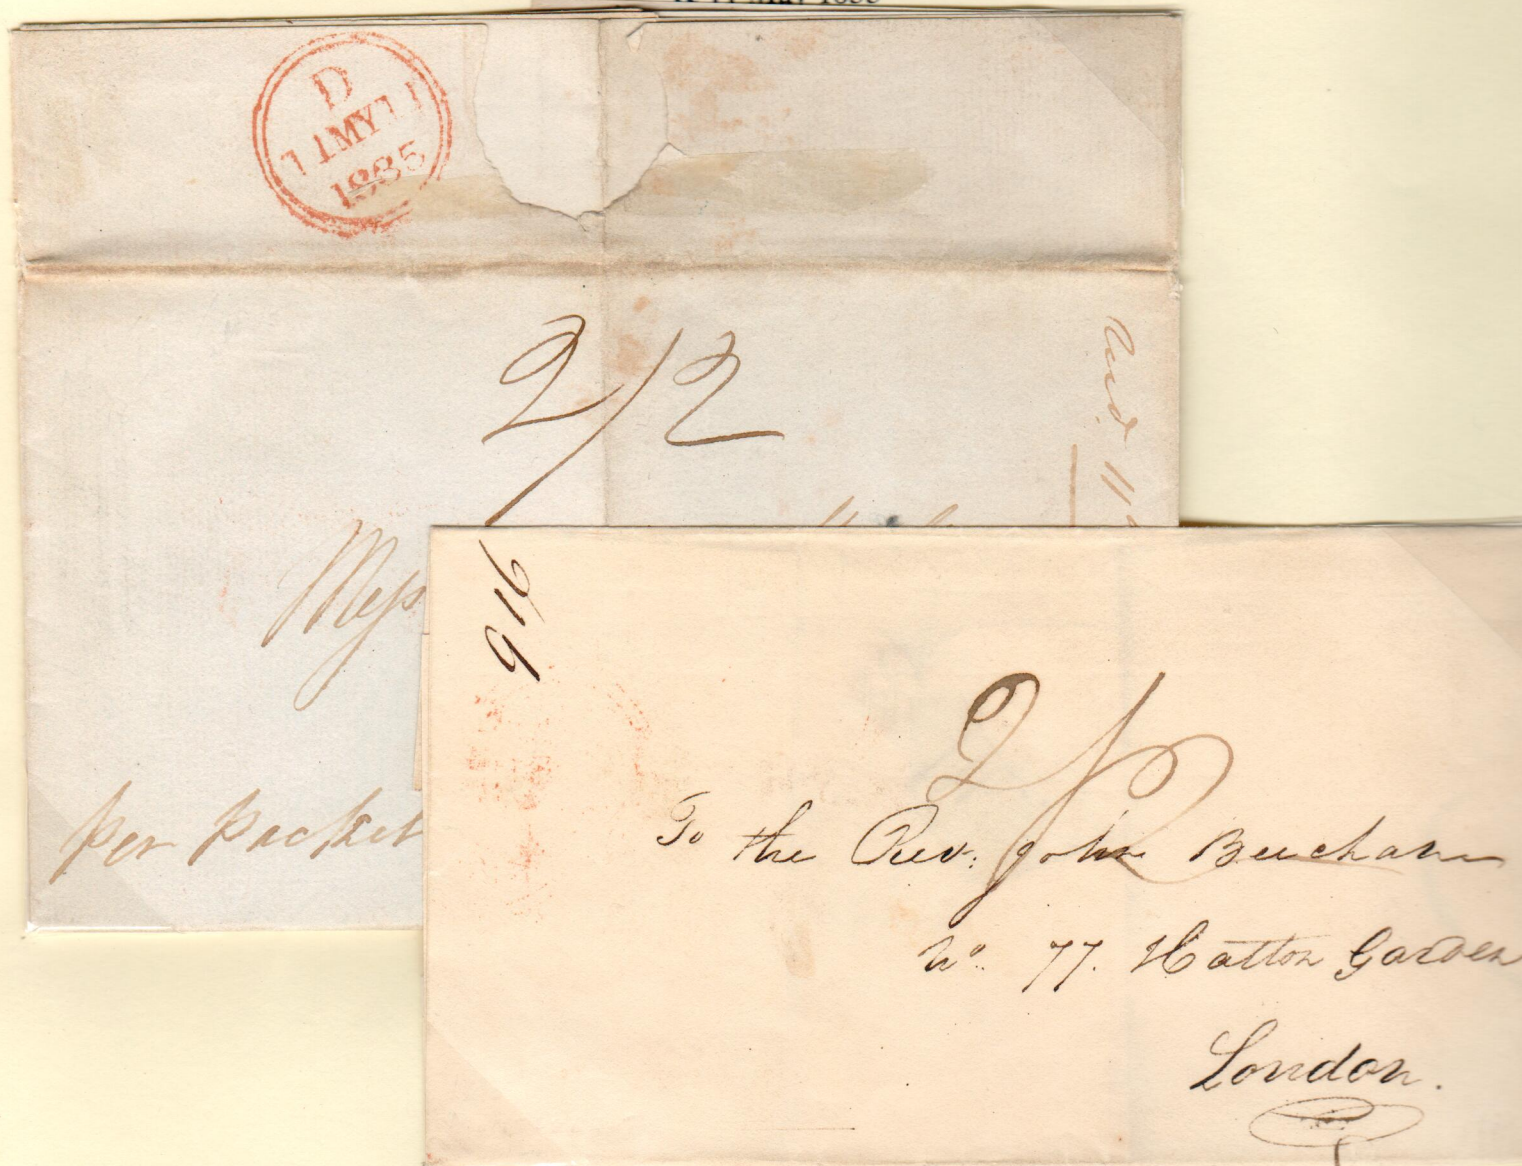 D
11MY11
1835
2/2
Recd. 11
Mess
per packet
916
2/2
To the Rev: John Beecham
No. 77. Hatton Garden
London.